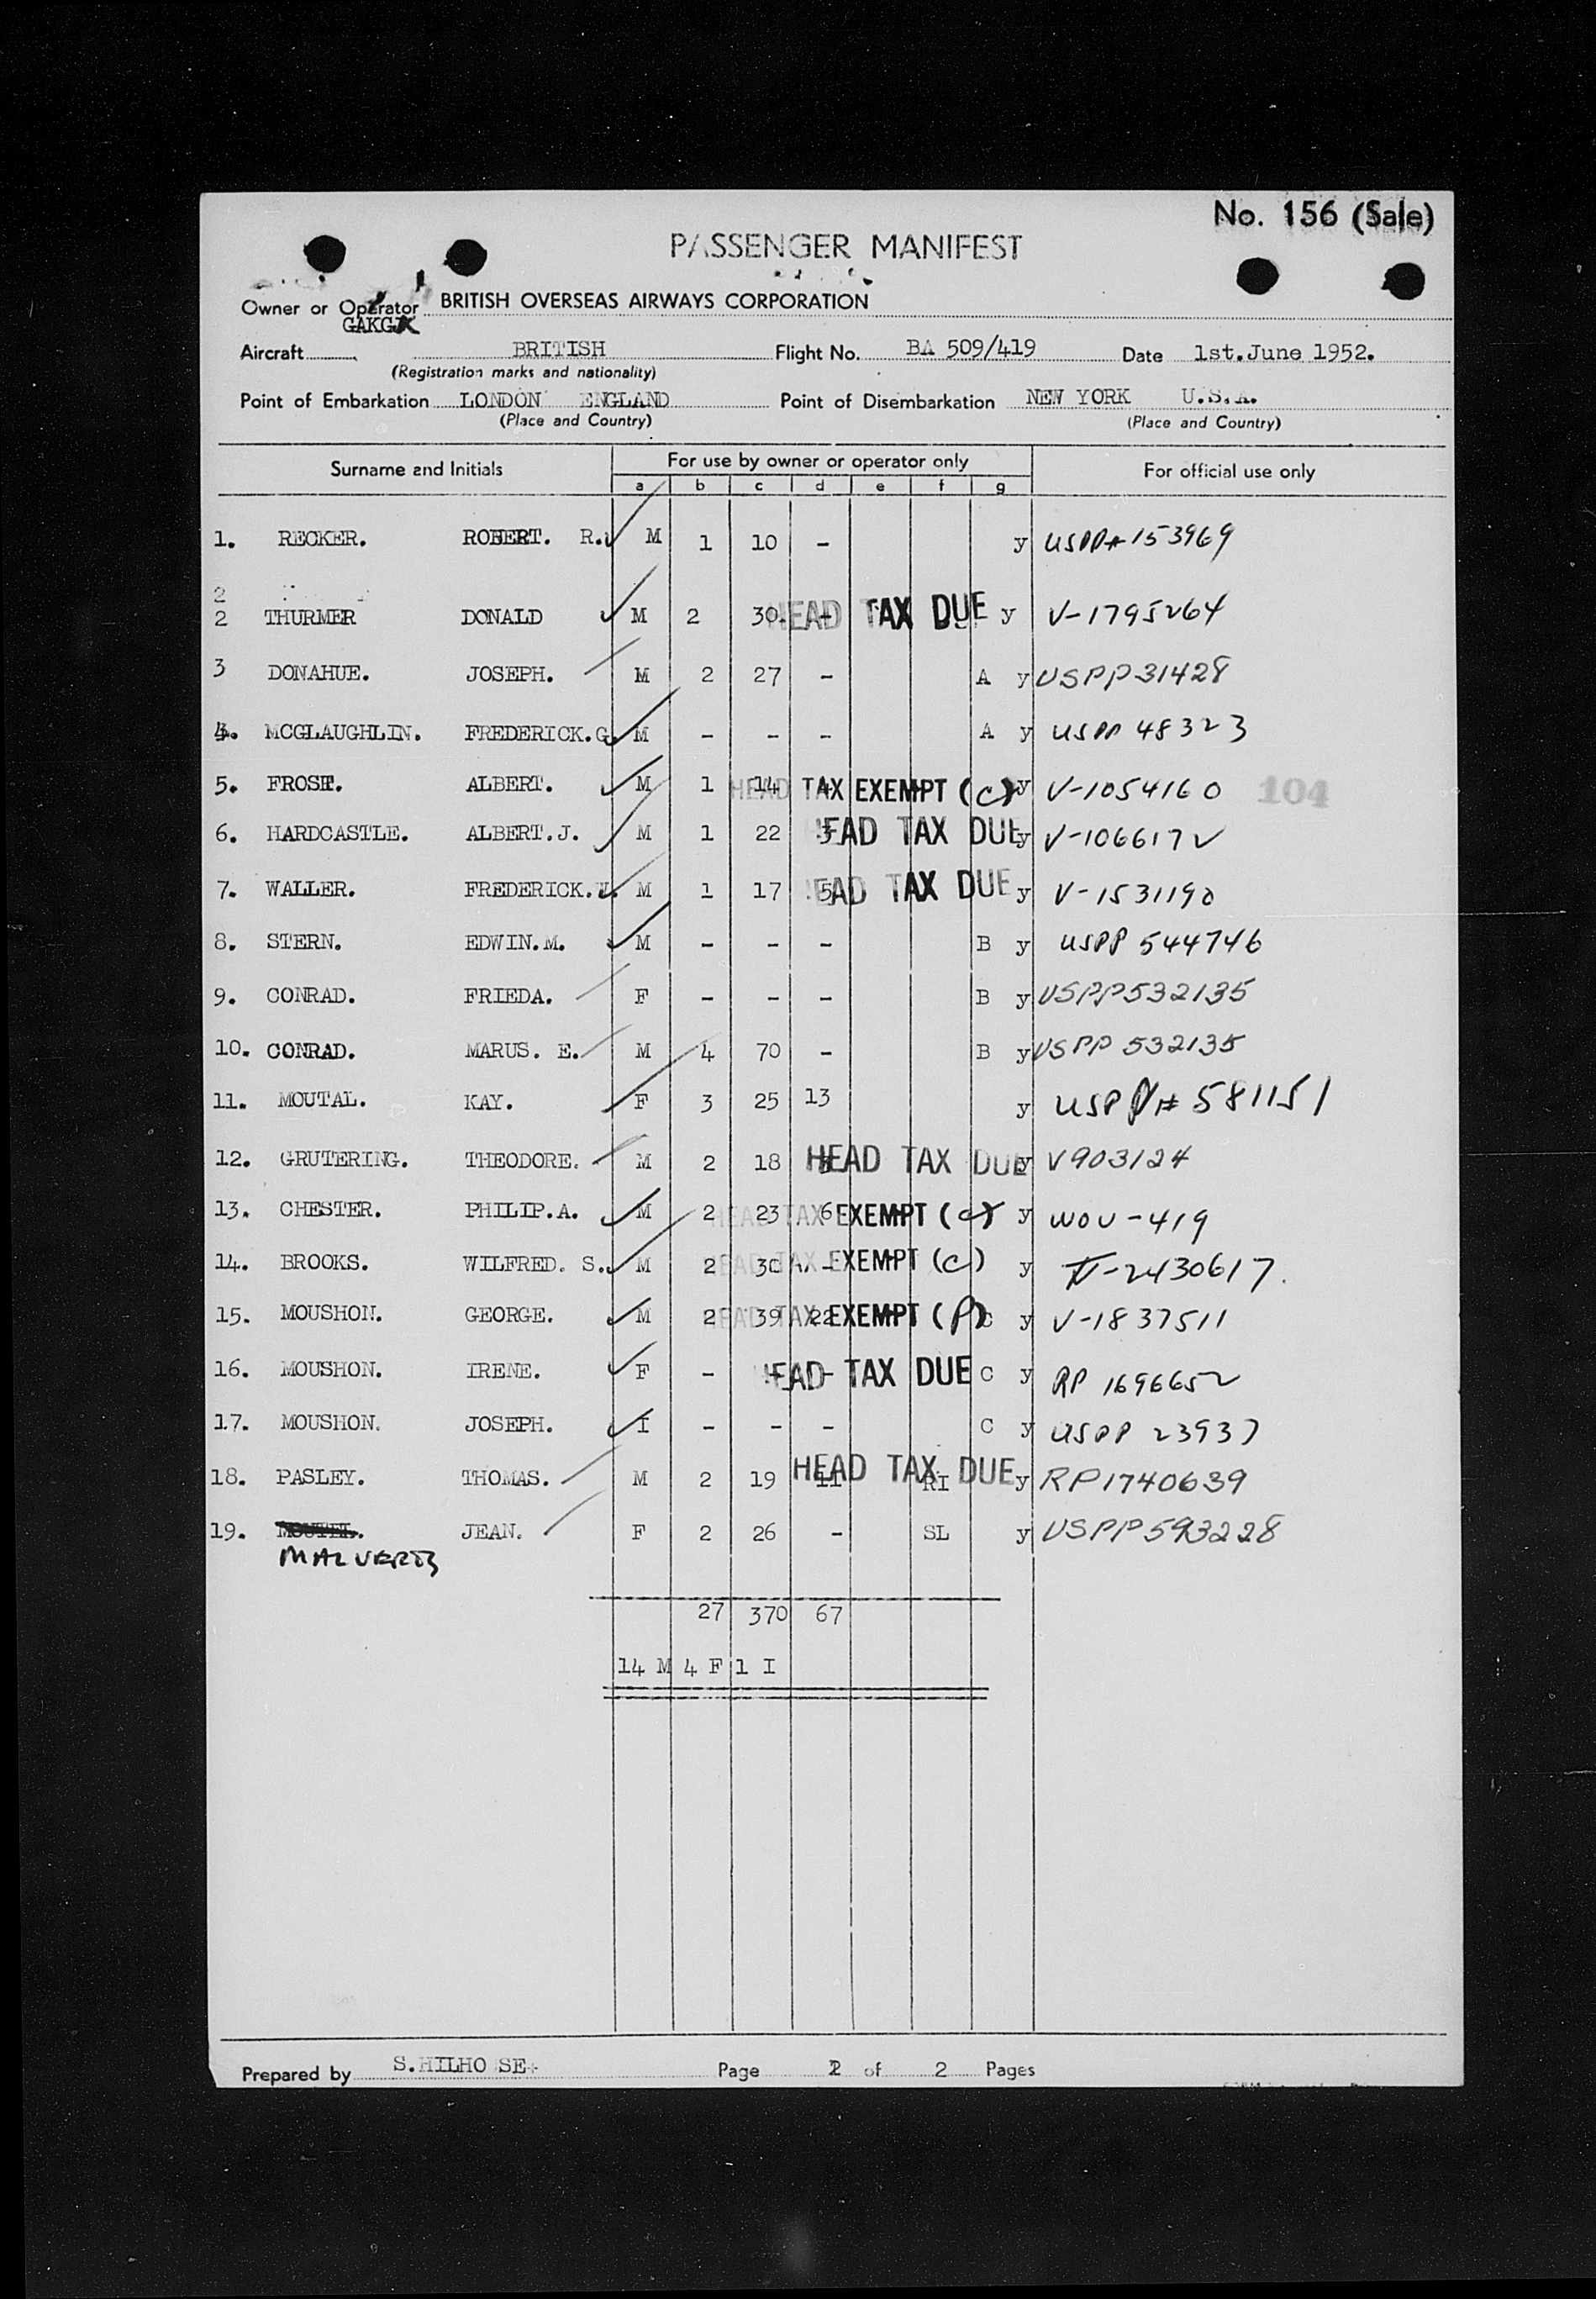 No. 156 (Sale)
PASSENGER MANIFEST
Owner or Operator BRITISH OVERSEAS AIRWAYS CORPORATION
Aircraft BRITISH Flight No. BA 509/419 Date 1st.June 1952.
(Registration marks and nationality)
Point of Embarkation LONDON ENGLAND Point of Disembarkation NEW YORK U.S.A.
(Place and Country) (Place and Country)
Surname and Initials For use by owner or operator only For official use only
a b c d e f g
1. RECKER. ROBERT. R. M 1 10 - y USPP# 153969
2
2 THURMER DONALD M 2 30. - HEAD TAX DUE y V-1795264
3 DONAHUE. JOSEPH. M 2 27 - A y USPP31428
4. MCGLAUGHLIN. FREDERICK.G. M - - - A y USPP 48323
5. FROST. ALBERT. M 1 14 HEAD TAX EXEMPT (C) y V-1054160 104
6. HARDCASTLE. ALBERT.J. M 1 22 3 HEAD TAX DUE y V-1066172
7. WALLER. FREDERICK. M 1 17 5 HEAD TAX DUE y V-1531190
8. STERN. EDWIN.M. M - - - B y USPP 544746
9. CONRAD. FRIEDA. F - - - B y USPP532135
10. CONRAD. MARUS. E. M 4 70 - B y USPP 532135
11. MOUTAL. KAY. F 3 25 13 y USPP# 581151
12. GRUTERING. THEODORE. M 2 18 HEAD TAX DUE y V903124
13. CHESTER. PHILIP.A. M 2 23 6 HEAD TAX EXEMPT (C) y WOU-419
14. BROOKS. WILFRED. S. M 2 30 - HEAD TAX EXEMPT (C) y V-2430617.
15. MOUSHON. GEORGE. M 2 39 22 HEAD TAX EXEMPT (P) C y V-1837511
16. MOUSHON. IRENE. F - - - HEAD TAX DUE C y RP 1696652
17. MOUSHON. JOSEPH. I - - - C y USPP 23937
18. PASLEY. THOMAS. M 2 19 11 HEAD TAX DUE RI y RP1740639
19. JEAN. F 2 26 - SL y USPP593228
27 370 67
14 M 4 F 1 I
Prepared by Page 2 of 2 Pages